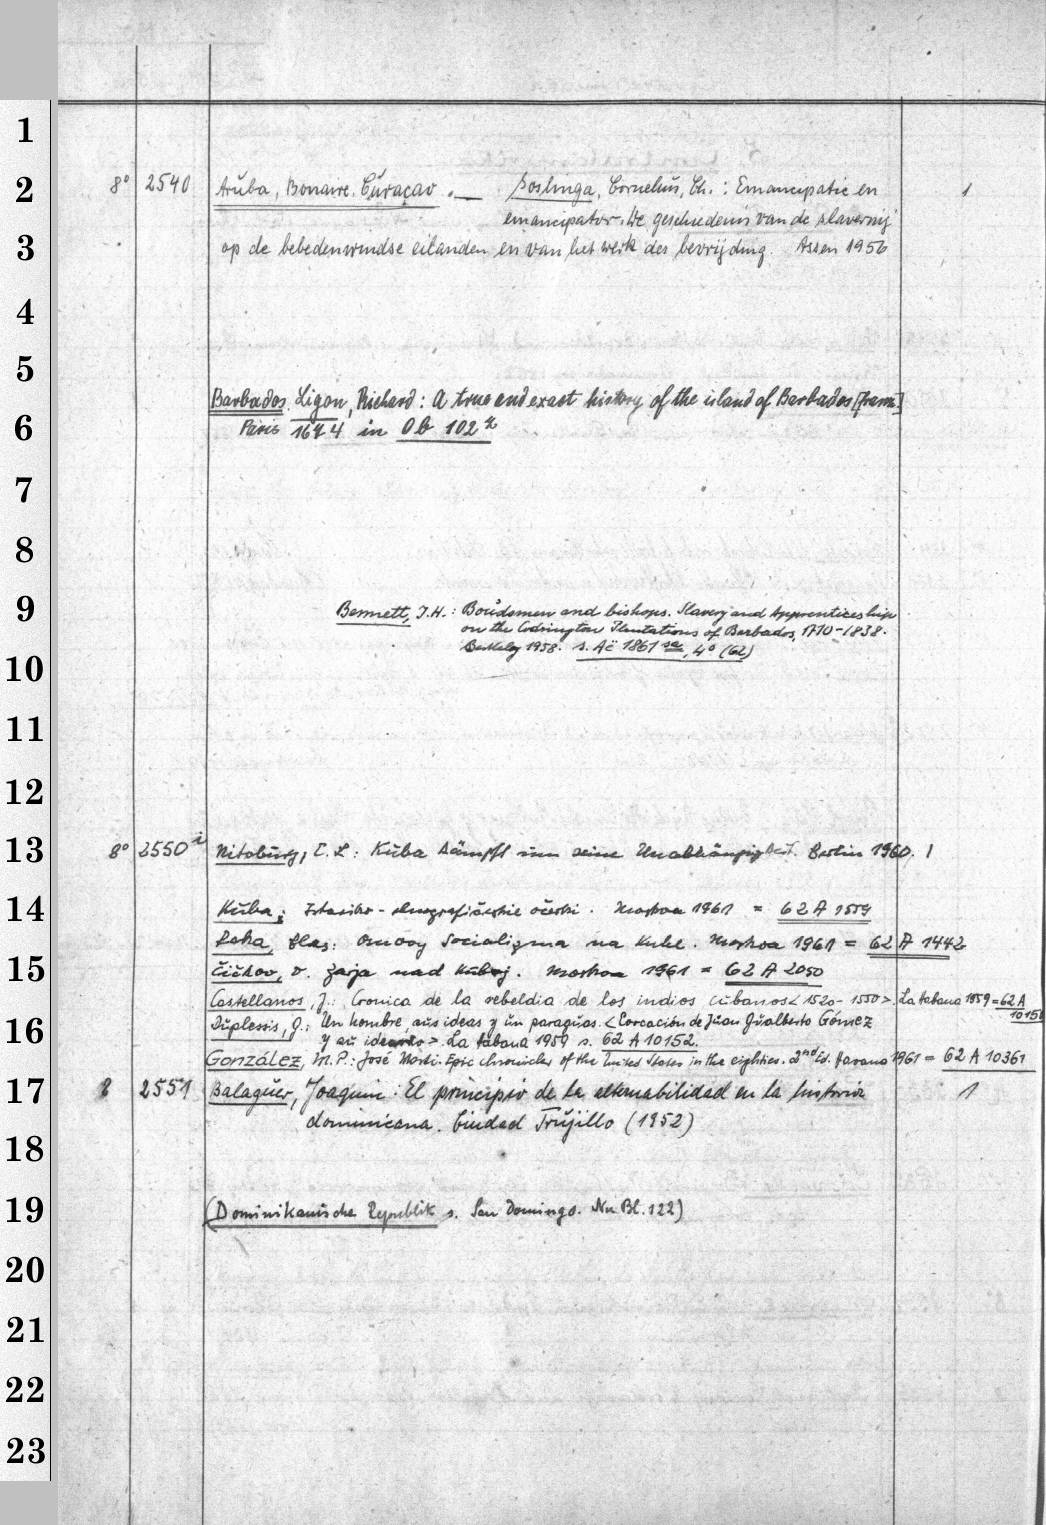 8° 2540 Aruba, Bonaire. Curaçao. — Goslinga, Cornelius, Ch.: Emancipatie en 1
emancipator. De geschiedenis van de slavernij
op de bebedenwindse eilanden en van het werk des bevrijding. Assen 1956
Barbados. Ligon, Richard: A true and exact history of the island of Barbados [franz.]
Paris 1674 in Ob 102
Bennett, J.H.: Boudsmen and bishops. Slavery and Apprenticeship
on the Codrington Plantations of Barbados, 1710-1838.
Berkeley 1958. s. Ac 1861, 4° (62)
8° 2550 i Nitoburg, E. L.: Kuba kämpft um seine Unabhängigkeit. Berlin 1960. 1
Kuba: Istoriko-etnografičeskie očerki. Moskva 1961 = 62 A 1559
Roka, Blas: Osnovy Socializma na Kube. Moskva 1961 = 62 A 1442
Čičkov, V. Zarja nad Kuboj. Moskva 1961 = 62 A 2050
Castellanos, J.: Cronica de la rebeldia de los indios cubanos <1520-1550>. La Habana 1959 = 62 A
10156
Duplessis, G.: Un hombre, sus ideas y un paraguas. <Evocación de Juan Gualberto Gómez
y su ideario>. La Habana 1959 s. 62 A 10152.
González, M. P.: José Marti. Epic chronicler of the United States in the eighties. 2nd Ed. Havana 1961 = 62 A 10361
8 2551 Balaguer, Joaquin: El principio de la alternabilidad en la historia 1
dominicana. Ciudad Trujillo (1952)
(Dominikanische Republik s. San Domingo. Nu Bl. 122)
1
2
3
4
5
6
7
8
9
10
11
12
13
14
15
16
17
18
19
20
21
22
23